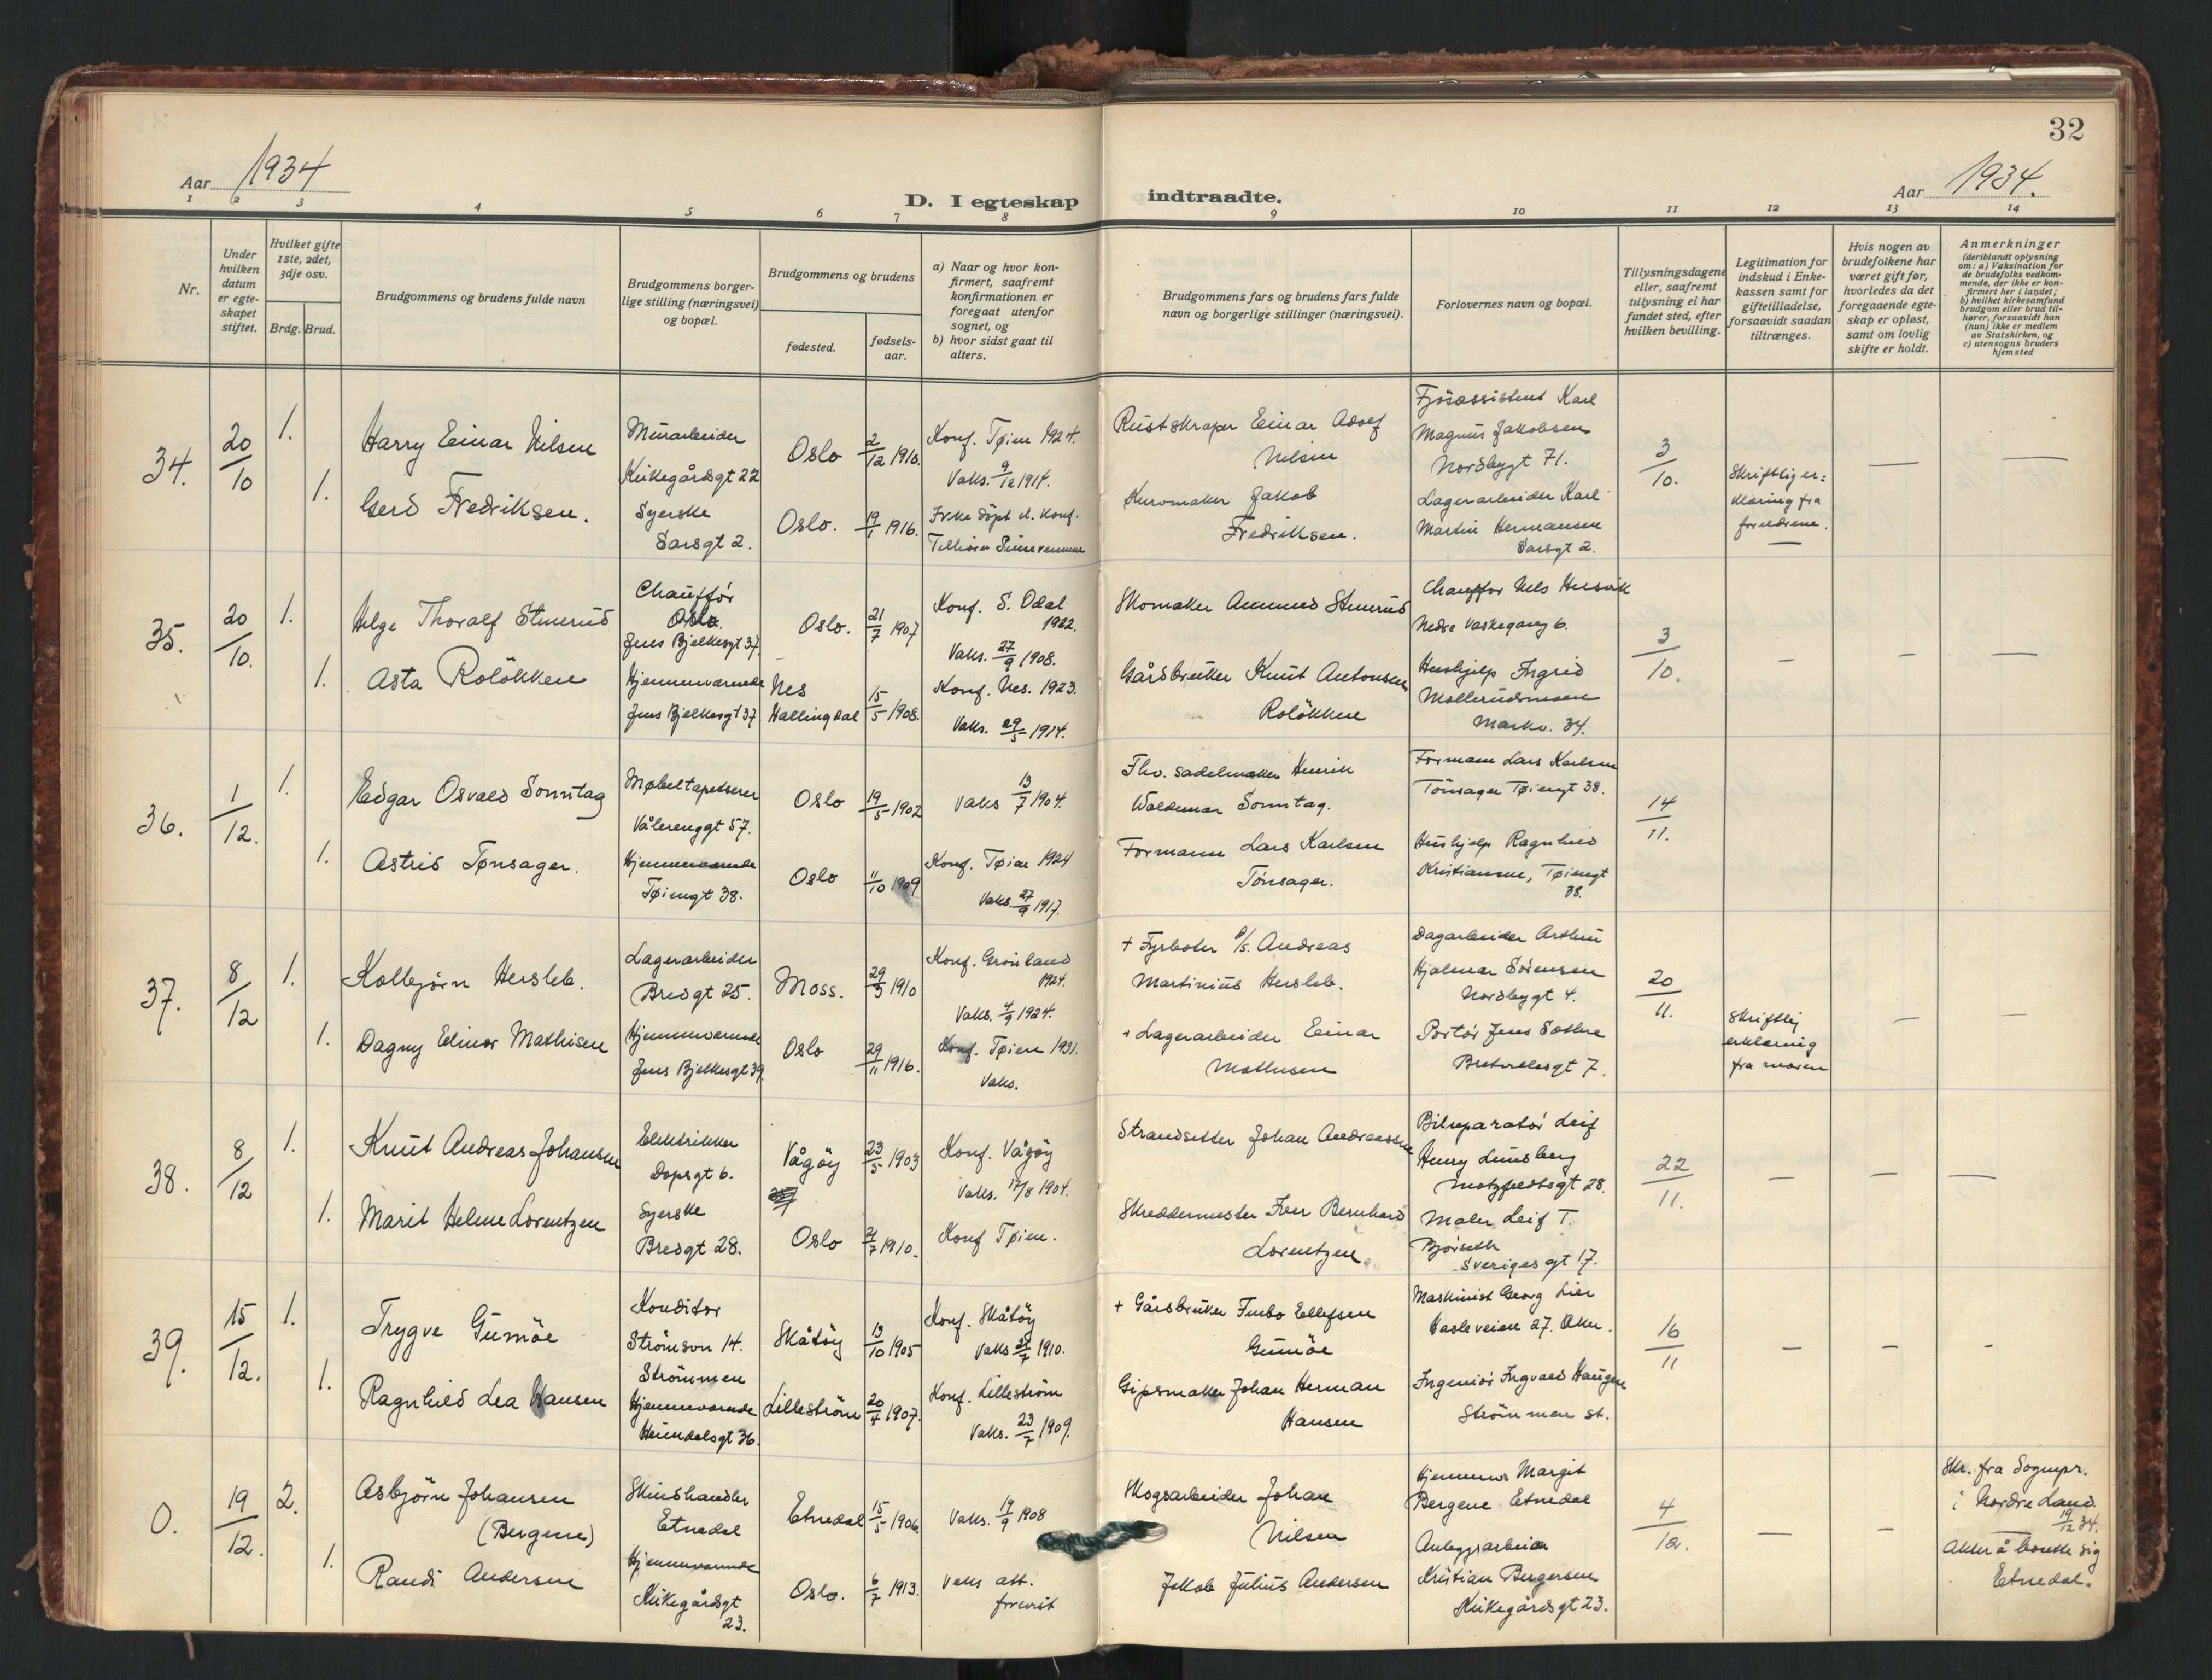 32
Aar 1934
D. I egteskap indtraadte.
Aar 1934.
1 2 3 4 5 6 7 8 9 10 11 12 13 14
Nr.
Under hvilken datum er egte-skapet stiftet.
Hvilket gifte 1ste, 2det, 3dje osv.
Brdg. Brud.
Brudgommens og brudens fulde navn
Brudgommens borger-lige stilling (næringsvei) og bopæl.
Brudgommens og brudens
fødested.
fødsels-aar.
a) Naar og hvor kon-firmert, saafremt konfirmationen er foregaat utenfor sognet, og
b) hvor sidst gaat til alters.
Brudgommens fars og brudens fars fulde navn og borgerlige stillinger (næringsvei).
Forlovernes navn og bopæl.
Tillysningsdagene eller, saafremt tillysning ei har fundet sted, efter hvilken bevilling.
Legitimation for indskud i Enke-kassen samt for giftetilladelse, forsaavidt saadan tiltrænges.
Hvis nogen av brudefolkene har været gift før, hvorledes da det foregaaende egte-skap er opløst, samt om lovlig skifte er holdt.
Anmerkninger
(deriblandt oplysning om: a) Vaksination for de brudefolks vedkom-mende, der ikke er kon-firmert her i landet; b) hvilket kirkesamfund brudgom eller brud til-hører, forsaavidt han (hun) ikke er medlem av Statskirken, og c) utensogns bruders hjemsted
34.
20/10
1.
Harry Einar Nilsen
Murarbeider
Kirkegårdsgt 22
Oslo
2/12 1910.
Konf. Tøien 1924.
Vaks. 9/12 1914.
Rustskraper Einar Adolf
Nilsen
Fjøsassistent Karl
Magnus Jakobsen
Nordbygt 71.
3/10.
1.
Gerd Fredriksen.
Syerske
Sarsgt 2.
Oslo.
19/1 1916.
Ikke døpt el. konf.
Tilhører Pinsevennene
Kurvmaker Jakob
Fredriksen.
Lagerarbeider Karl
Martin Hermansen
Sarsgt 2.
Skriftlig er=
klæring fra
foreldrene.
35.
20/10.
1.
Helge Thoralf Stenerud
Chauffør
Oslo.
Jens Bjelkesgt 37.
Oslo.
21/7 1907
Konf. S. Odal
1922.
Vaks. 27/9 1908.
Skomaker Amund Stenerud
Chauffør Nels Hersvik
Nedre Vaskegang 6.
3/10.
1.
Asta Roløkken
Hjemmeværende
Jens Bjelkesgt 37
Nes
Hallingdal
15/5 1908.
Konf. Nes. 1923.
Vaks. 29/5 1914.
Gårdbruker Knut Antonsen
Roløkken
Hushjelp Ingrid
Mollerudsmoen
Markv. 34.
36.
1/12.
1.
Edgar Osvald Sonntag
Møbeltapetserer
Vålerenggt 57.
Oslo
19/5 1902
Vaks 13/7 1904.
Fhv. sadelmaker Henrik
Waldemar Sonntag.
Formann Lars Karlsen
Tønsager Tøiengt 38.
14/11.
1.
Astrid Tønsager.
Hjemmeværende
Tøiengt 38.
Oslo
11/10 1909
Konf. Tøien 1924
Vaks. 27/9 1917.
Formann Lars Karlsen
Tønsager.
Hushjelp Ragnhild
Kristiansen, Tøiengt
38.
37.
8/12
1.
Kolbjørn Hersleb.
Lagerarbeider
Bredgt 25.
Moss.
29/3 1910
Konf. Grønland
1924.
Vaks. 4/9 1924.
+ Fyrbøter D/S. Andreas
Martinius Hersleb.
Dagarbeider Arthur
Hjalmar Sørensen
Nordbygt 4.
20/11.
1.
Dagny Elinor Mathisen
Hjemmeværende
Jens Bjelkesgt 39.
Oslo
29/11 1916.
Konf. Tøien 1931.
Vaks.
+ Lagerarbeider Einar
Mathisen
Portør Jens Sæthre
Bretvedesgt 7.
Skriftlig
erklæring
fra moren
38.
8/12
1.
Knut Andreas Johansen
Elektrikker
Dopsgt 6.
Vågøy
23/5 1903
Konf. Vågøy
Vaks. 17/8 1904.
Strandsitter Johan Andreassen
Bilreparatør Leif
Henry Lundsberg
Motzfeldtsgt 28.
22/11.
1.
Marit Helene Lorentzen
Syerske
Bredgt 28.
Oslo
4/7 1910.
Konf Tøien.
Skreddermester Iver Bernhard
Lorentzen
Maler Leif T.
Bjørseth
Sverigesgt 17.
39.
15/12.
1.
Trygve Gumøe
Konditor
Strømsvn 14.
Strømmen
Skåtøy
13/10 1905
Konf. Skåtøy
Vaks 27/7 1910.
+ Gårdbruker Ellefsen
Gumøe
Maskinist Georg Lier
Hasleveien 27. Aker.
16/11
1.
Ragnhild Lea Hansen
Hjemmeværende
Heimdalsgt 36.
Lillestrøm
20/4 1907.
Konf. Lillestrøm
Vaks. 23/7 1909.
Gipsmaker Johan Herman
Hansen
Ingeniør Ingvald Haugen
Strømmen st.
0.
19/12.
2.
Asbjørn Johansen
(Bergene)
Skinshandler
Etnedal
Etnedal
15/5 1906.
Vaks. 19/9 1908
Skogsarbeider Johan
Nilsen
Hjemmev. Margit
Bergene Etnedal
4/12.
Skr. fra Sognepr.
i Nordre Land.
19/12 34.
1.
Randi Andersen
Hjemmeværende
Kirkegårdsgt
23.
Oslo.
6/7 1913.
Vaks att.
forevist
Jakob Julius Andersen
Anleggsarbeider
Kristian Birgersen
Kirkegårdsgt 23.
Akter å bosette sig
Etnedal.